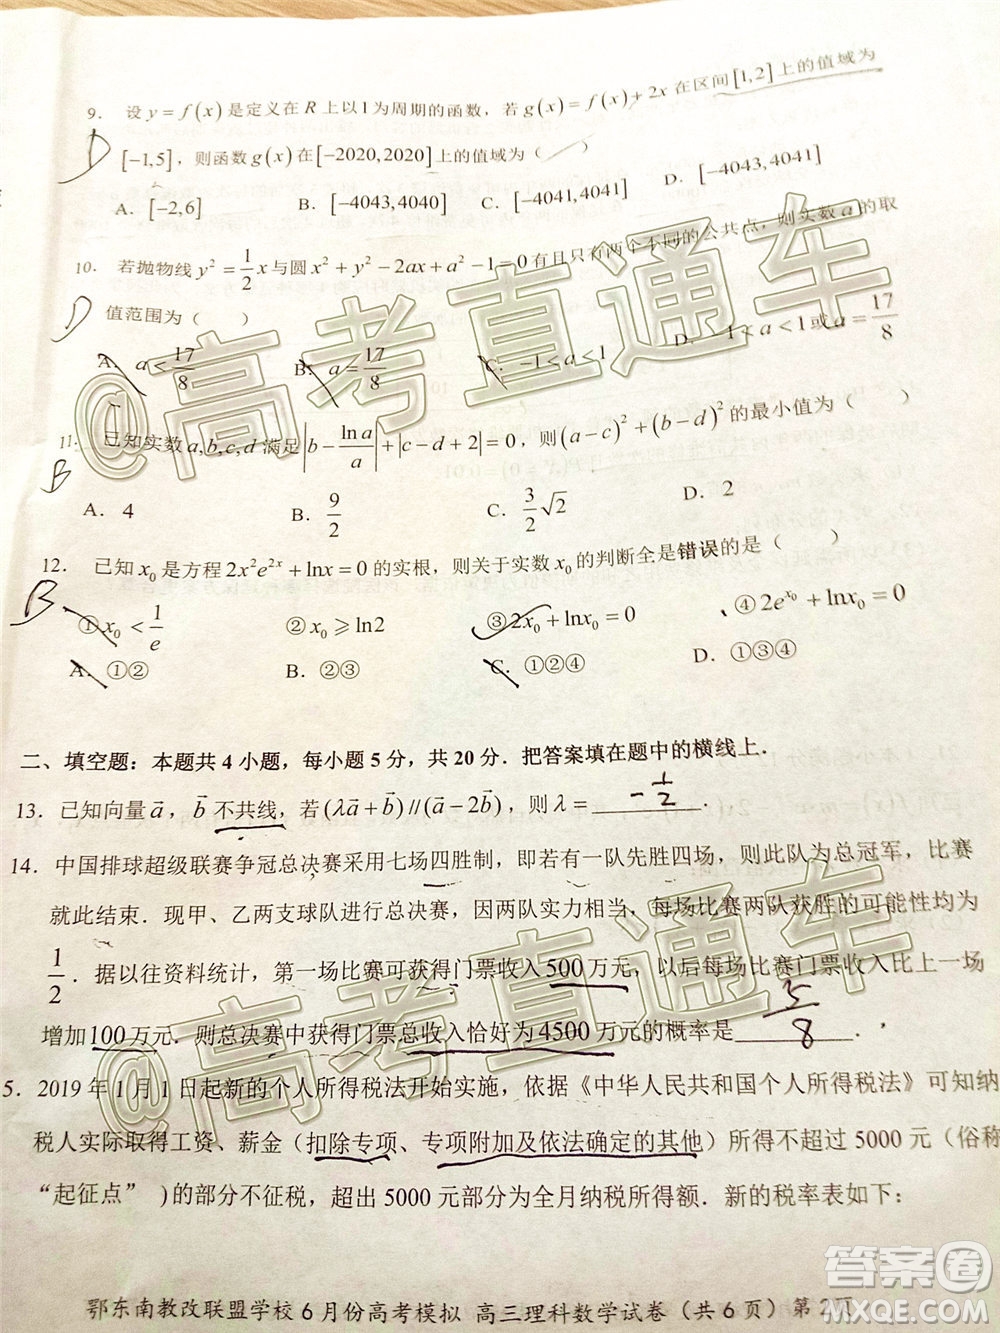 9. 设 y = f(x) 是定义在 R 上以1为周期的函数，若 g(x) = f(x) + 2x 在区间 [1,2] 上的值域为
D
[-1,5]，则函数 g(x) 在 [-2020,2020] 上的值域为（ ）
A. [-2,6] B. [-4043,4040] C. [-4041,4041] D. [-4043,4041]
10. 若抛物线 y² = 1/2 x 与圆 x² + y² - 2ax + a² - 1 = 0 有且只有两个不同的公共点，则实数 a 的取
D
值范围为（ ）
A. a < 17/8 B. a = 17/8 C. -1 < a < 1 D. -1 < a < 1或a = 17/8
11. 已知实数 a,b,c,d 满足 |b - lna/a| + |c - d + 2| = 0，则 (a - c)² + (b - d)² 的最小值为（ ）
B
A. 4 B. 9/2 C. 3/2 √2 D. 2
12. 已知 x₀ 是方程 2x²e²ˣ + lnx = 0 的实根，则关于实数 x₀ 的判断全是错误的是（ ）
B
① x₀ < 1/e ② x₀ ⩾ ln2 ③ 2x₀ + lnx₀ = 0 ④ 2e^x₀ + lnx₀ = 0
A. ①② B. ②④ C. ①②④ D. ①③④
二、填空题：本题共4小题，每小题5分，共20分．把答案填在题中的横线上．
13. 已知向量 a⃗，b⃗ 不共线，若 (λa⃗ + b⃗) // (a⃗ - 2b⃗)，则 λ = -1/2．
14. 中国排球超级联赛争冠总决赛采用七场四胜制，即若有一队先胜四场，则此队为总冠军，比赛
就此结束．现甲、乙两支球队进行总决赛，因两队实力相当，每场比赛两队获胜的可能性均为
1/2．据以往资料统计，第一场比赛可获得门票收入500万元，以后每场比赛门票收入比上一场
增加100万元．则总决赛中获得门票总收入恰好为4500万元的概率是 5/8．
5. 2019年1月1日起新的个人所得税法开始实施，依据《中华人民共和国个人所得税法》可知纳
税人实际取得工资、薪金（扣除专项、专项附加及依法确定的其他）所得不超过5000元（俗称
“起征点”)的部分不征税，超出5000元部分为全月纳税所得额．新的税率表如下：
鄂东南教改联盟学校6月份高考模拟 高三理科数学试卷（共6页）第2页
@高考直通车
@高考直通车
答案圈
MXQE.COM